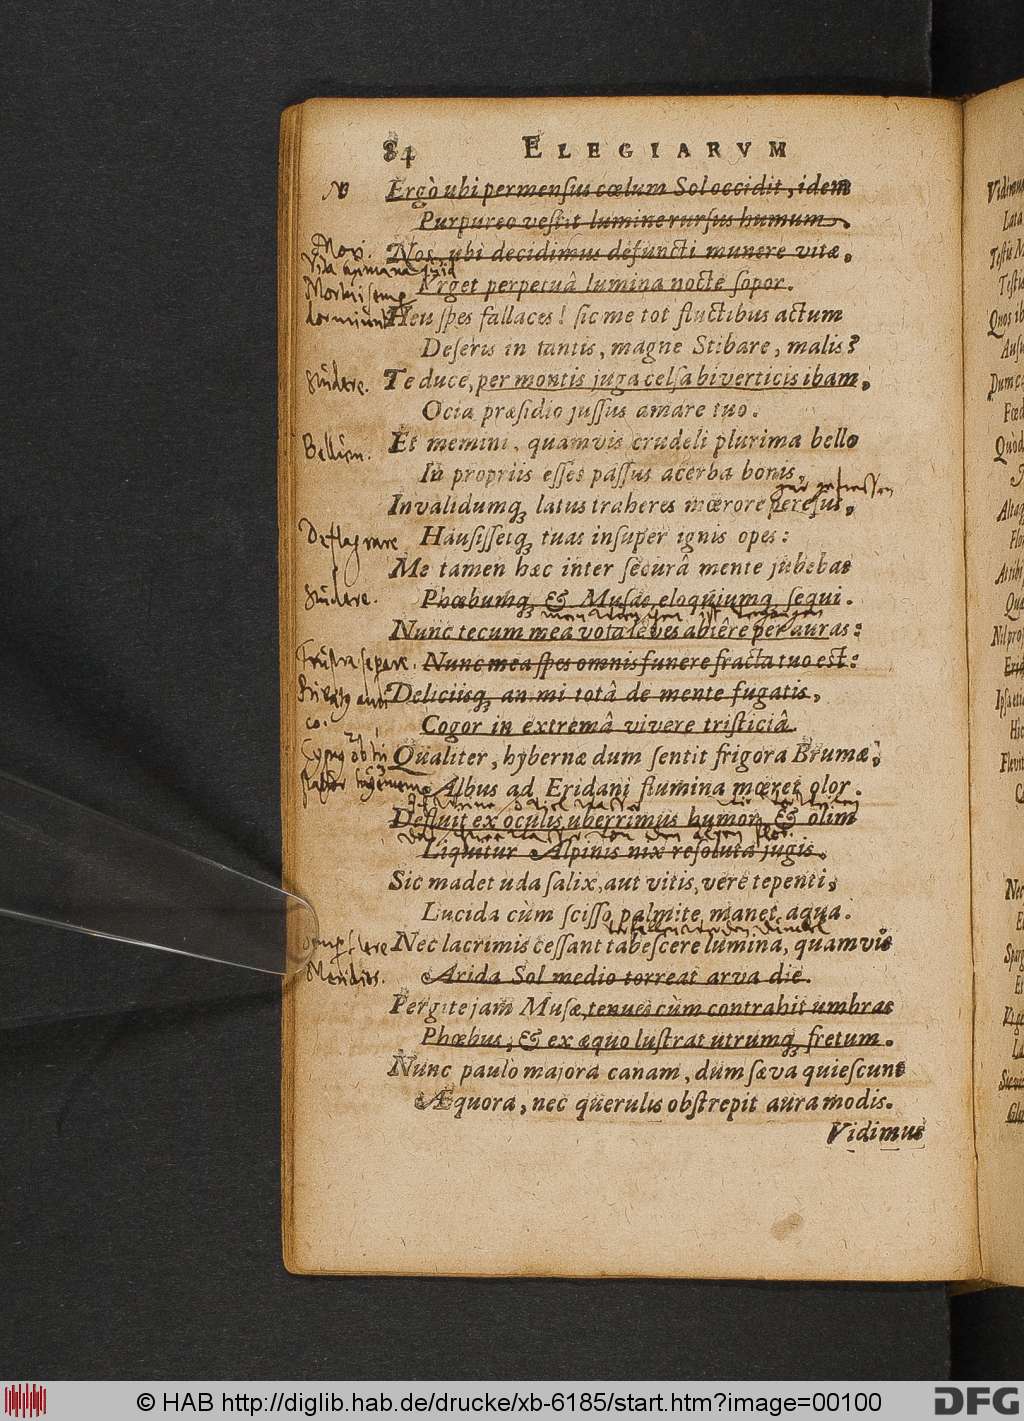 84 ELEGIARVM
NB
Ergò ubi permensus cœlum Sol occidit, idem
Purpureo vestit lumine rursus humum.
Mori.
Nos, ubi decidimus defuncti munere vitæ,
Vita humana quid
Vrget perpetuâ lumina nocte sopor.
Mortui semp
dormiunt
Heu spes fallaces! sic me tot fluctibus actum
Deseris in tantis, magne Stibare, malis?
Studere.
Te duce, per montis juga celsa biverticis ibam,
Ocia præsidio jussus amare tuo.
Et memini, quamvis crudeli plurima bello
Bellum.
In propriis esses passus acerba bonis,
gar gefressen
Invalidumq; latus traheres mœrore peresus,
Deflagrare
Hausissetq; tuas insuper ignis opes:
Me tamen hæc inter securâ mente jubebas
Studere.
Phœbumq; & Musas, eloquiumq; sequi.
Nunc tecum mea vota leves abiêre per auras:
Frustra sperare.
Nunc mea spes omnis funere fracta tuo est:
Deliciisq; animi totâ de mente fugatis,
co.
Cogor in extremâ vivere tristiciâ.
Qualiter, hybernæ dum sentit frigora Brumæ,
Albus ad Eridani flumina mœret olor.
Defluit ex oculis uberrimus humor, & olim
Liquitur Alpinis nix resoluta jugis.
Sic madet uda salix, aut vitis, vere tepenti,
Lucida cùm scisso palmite manet aqua.
Nec lacrimis cessant tabescere lumina, quamvis
Semp flere
Meridies.
Arida Sol medio torreat arva die.
Pergite jam Musæ, tenues cùm contrahit umbras
Phœbus, & ex æquo lustrat utrumq; fretum.
Nunc paulò majora canam, dum sæva quiescunt
Æquora, nec querulis obstrepit aura modis.
Vidimus
© HAB http://diglib.hab.de/drucke/xb-6185/start.htm?image=00100
DFG